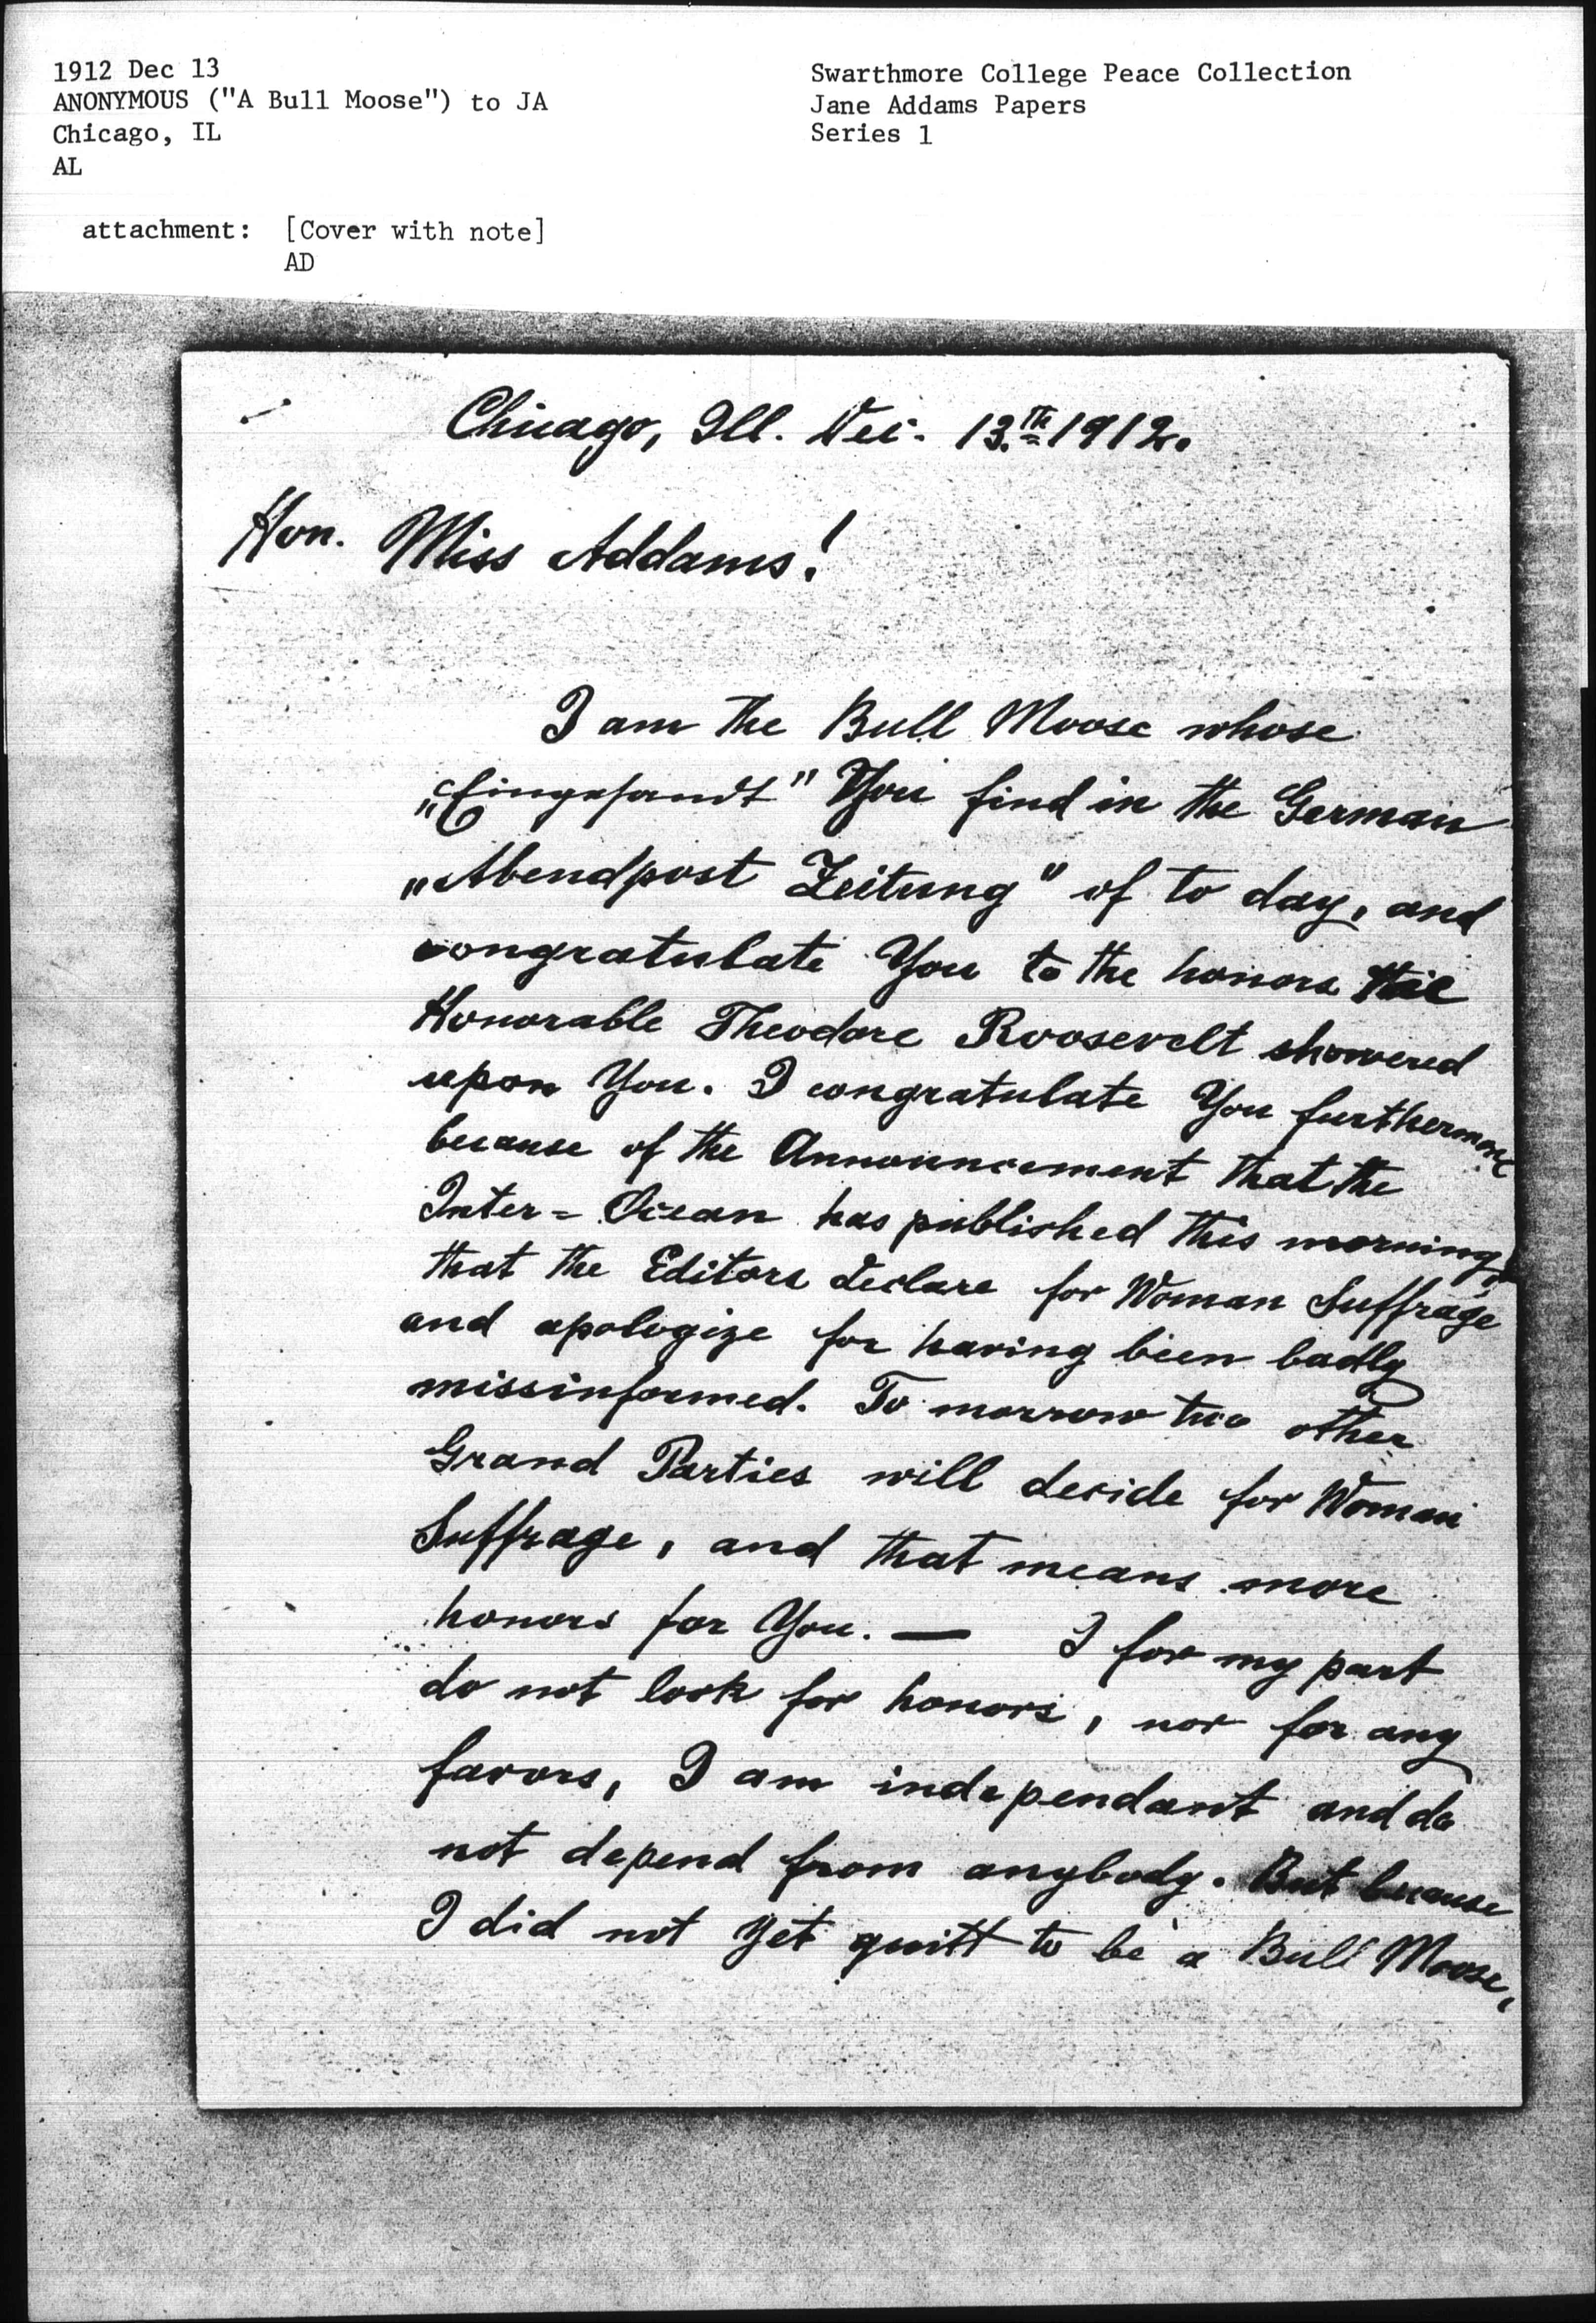 1912 Dec 13
ANONYMOUS ("A Bull Moose") to JA
Chicago, IL
AL
attachment: [Cover with note]
AD
Swarthmore College Peace Collection
Jane Addams Papers
Series 1
Chicago, Ill. Dec. 13.th 1912.
Hon. Miss Addams!
I am the Bull Moose whose
„Eingesandt" You find in the German
„Abendpost Zeitung" of to day, and
congratulate You to the honors the
Honorable Theodore Roosevelt showered
upon You. I congratulate You furthermore
because of the Announcement that the
Inter=Ocean has published this morning,
that the Editors declare for Woman Suffrage
and apologize for having been badly
missinformed. To morrow two other
Grand Parties will decide for Woman
Suffrage, and that means more
honors for You. — I for my part
do not look for honors, nor for any
favors, I am independant and do
not depend from anybody. But because
I did not yet quitt to be a Bull Moose,